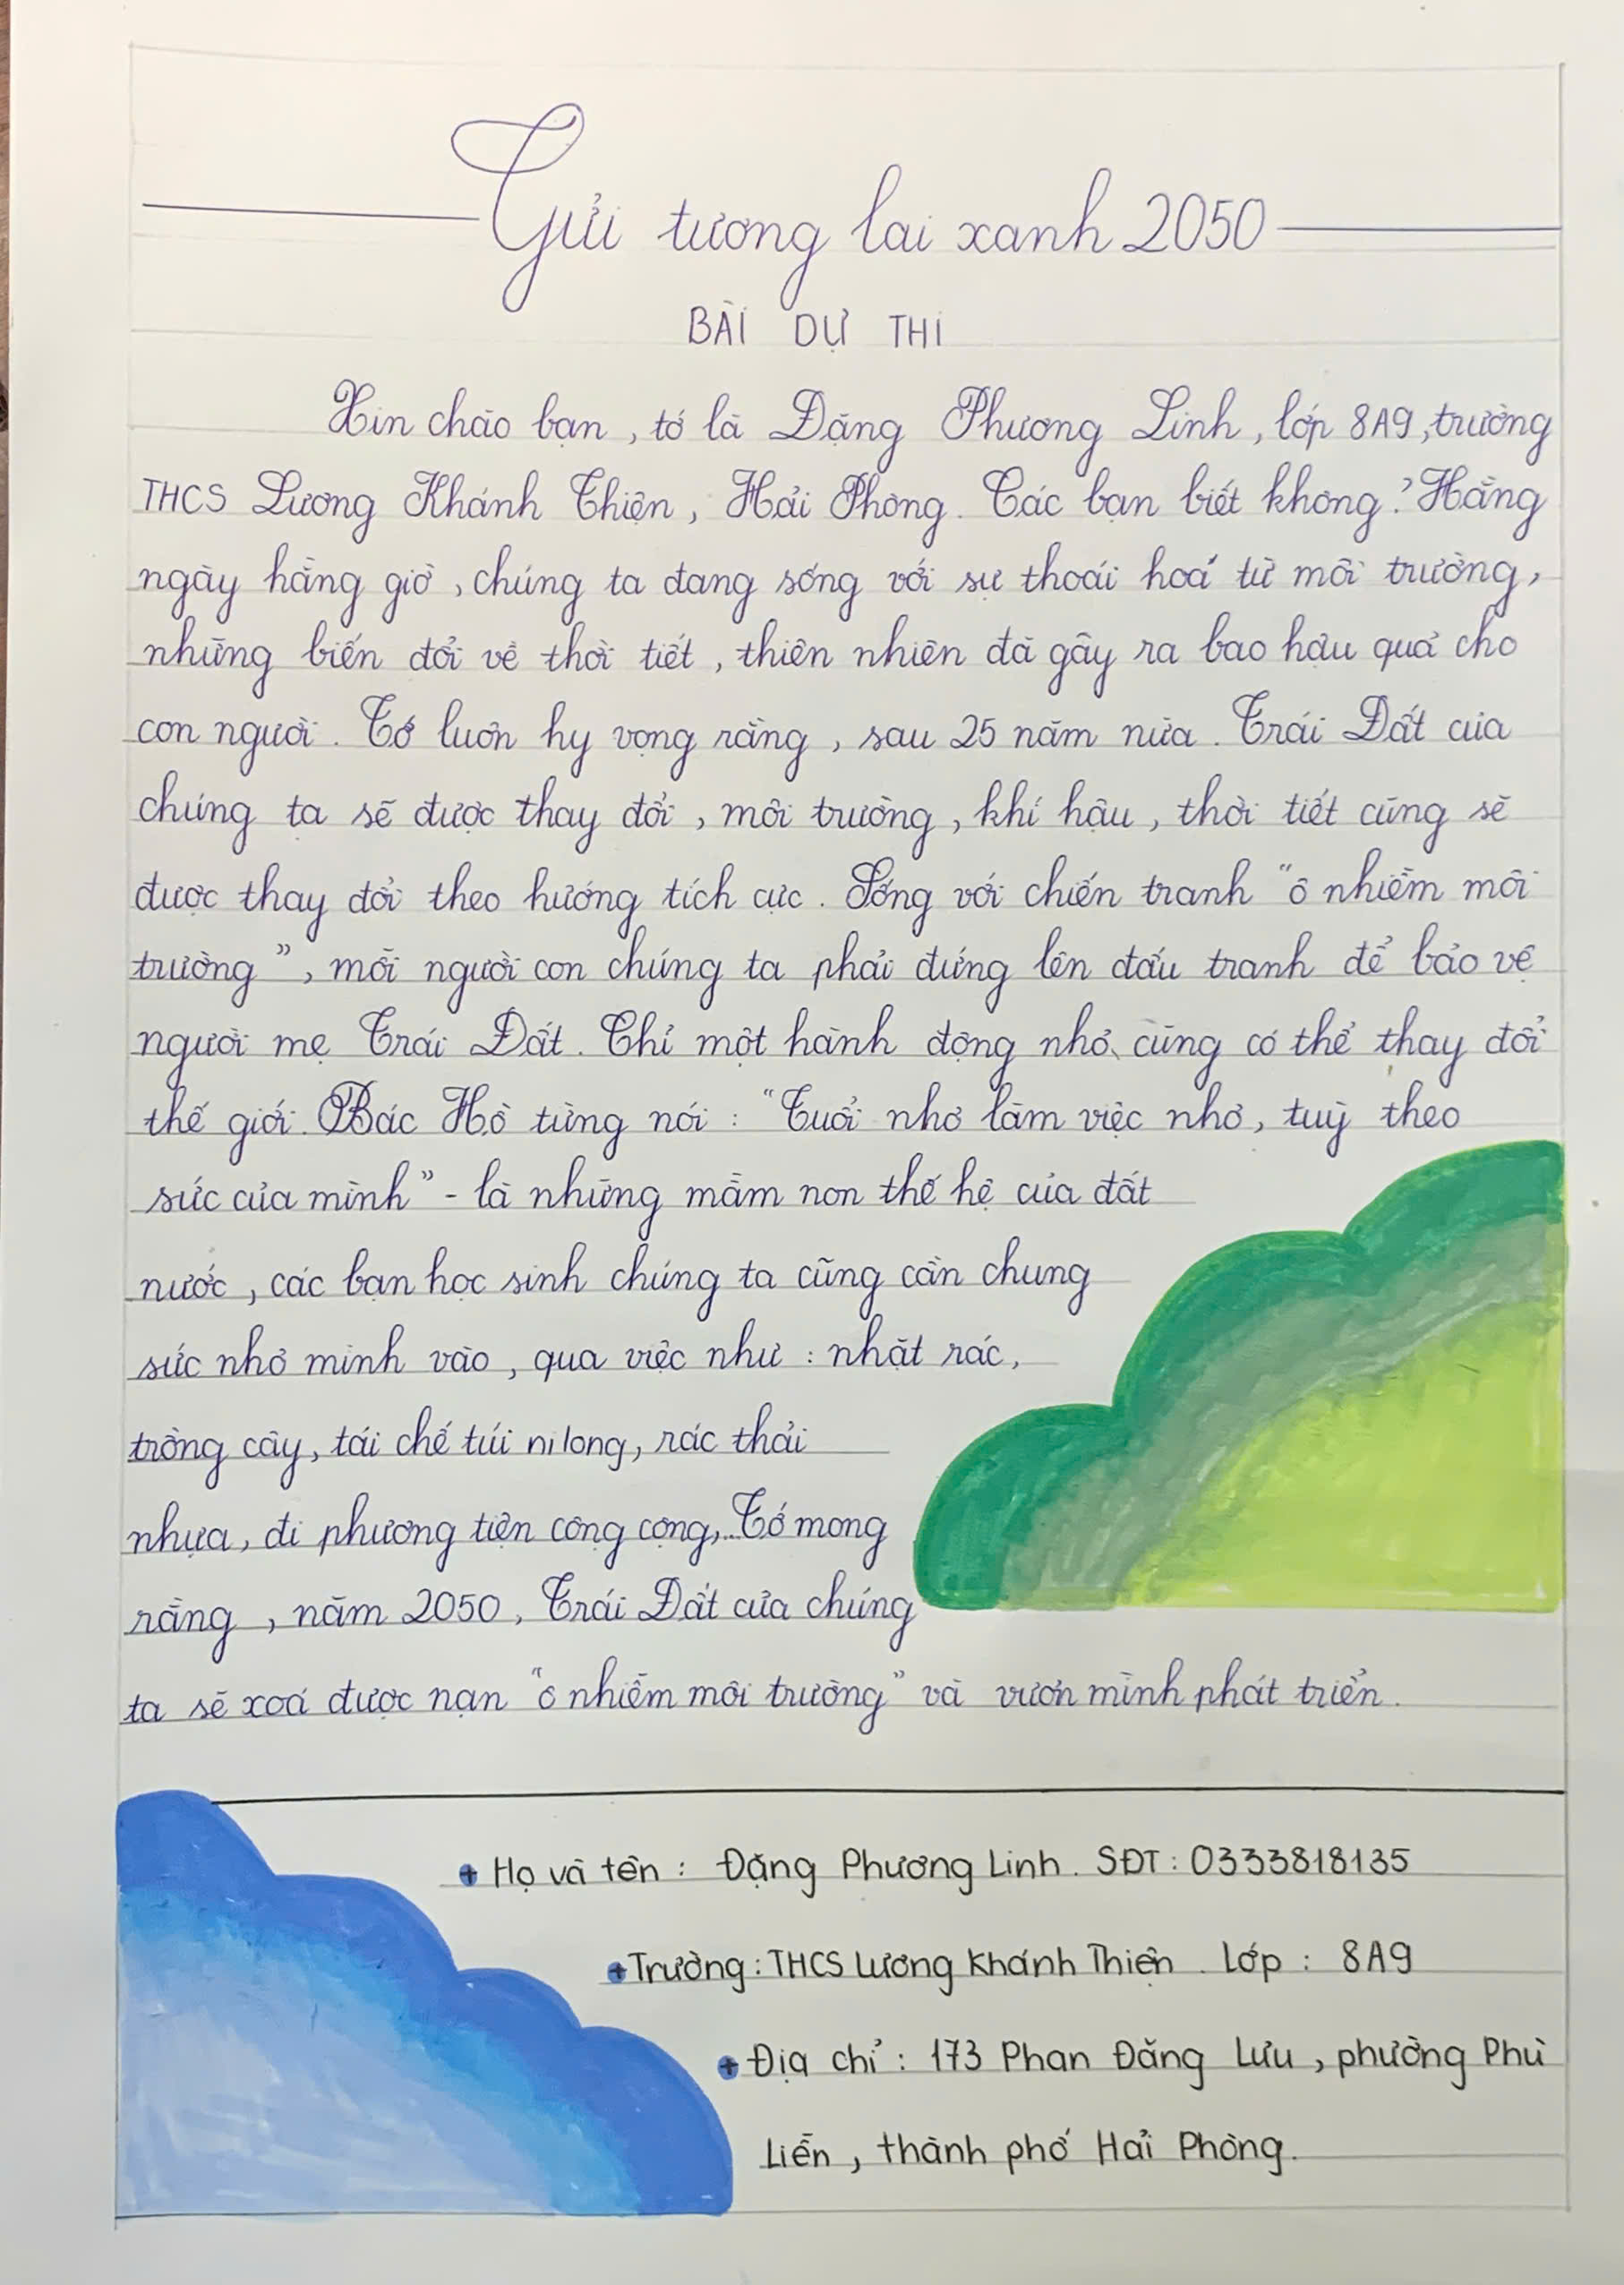 Gửi tương lai xanh 2050
BÀI DỰ THI
Xin chào bạn, tớ là Đặng Phương Linh, lớp 8A9, trường
THCS Lương Khánh Thiện, Hải Phòng. Các bạn biết không? Hằng
ngày hằng giờ, chúng ta đang sống với sự thoái hoá từ môi trường,
những biến đổi về thời tiết, thiên nhiên đã gây ra bao hậu quả cho
con người. Tớ luôn hy vọng rằng, sau 25 năm nữa. Trái Đất của
chúng ta sẽ được thay đổi, môi trường, khí hậu, thời tiết cũng sẽ
được thay đổi theo hướng tích cực. Sống với chiến tranh "ô nhiễm môi
trường", mỗi người con chúng ta phải đứng lên đấu tranh để bảo vệ
người mẹ Trái Đất. Chỉ một hành động nhỏ, cũng có thể thay đổi
thế giới. Bác Hồ từng nói: "Tuổi nhỏ làm việc nhỏ, tuỳ theo
sức của mình" - là những mầm non thế hệ của đất
nước, các bạn học sinh chúng ta cũng cần chung
sức nhỏ mình vào, qua việc như: nhặt rác,
trồng cây, tái chế túi nilong, rác thải
nhựa, đi phương tiện công cộng,... Tớ mong
rằng, năm 2050, Trái Đất của chúng
ta sẽ xoá được nạn "ô nhiễm môi trường" và vươn mình phát triển.
+ Họ và tên: Đặng Phương Linh. SĐT: 0333818135
+ Trường: THCS Lương Khánh Thiện. Lớp: 8A9
+ Địa chỉ: 173 Phan Đăng Lưu, phường Phù
Liễn, thành phố Hải Phòng.